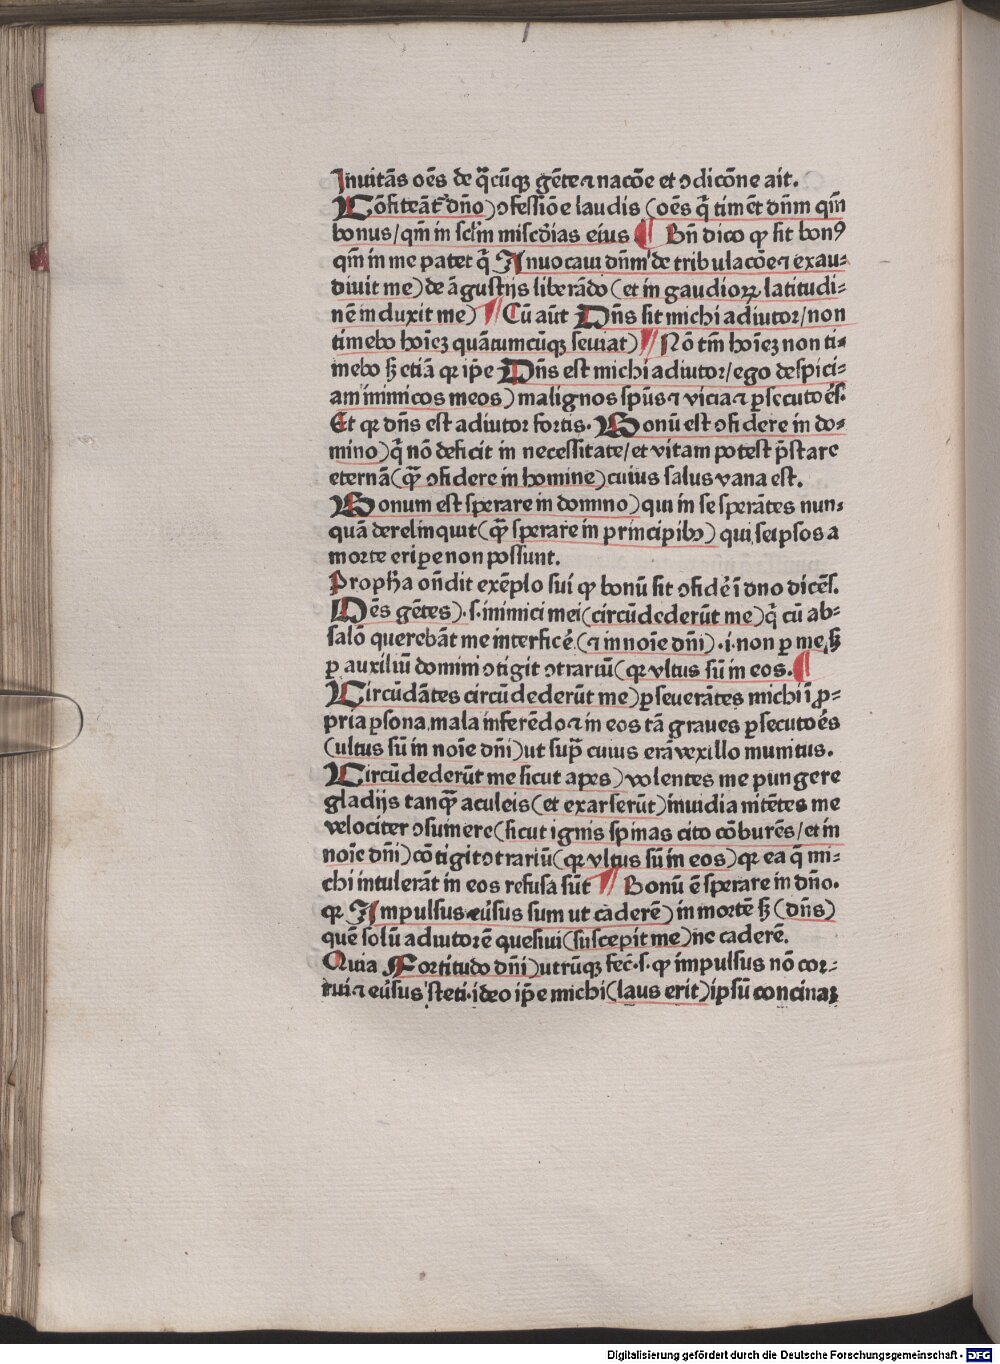 Inuitãs oẽs de q̃cũqꝫ gẽte ⁊ nacõe et ↄdicõne ait.
Cõfiteãt᷑ dño) ↄfessiõe laudis (oẽs q̃ timẽt dñm qm̃
bonus/qm̃ in sclm̃ misc̃dias eius ¶ Bñ dico ꝙ sit bonꝰ
qm̃ in me patet q̃ Inuocaui dñm de tribulacõe ⁊ exau-
diuit me) de ãgustijs liberãdo (et in gaudioꝝ latitudi-
nẽ induxit me) ¶ Cũ aũt Dñs sit michi adiutor/non
timebo hoĩeꝫ quãtumcũqꝫ seuiat) ¶ Nõ tm̃ hoĩeꝫ non ti-
mebo sꝫ etiã qꝛ ip̃e Dñs est michi adiutor/ego despici-
am inimicos meos) malignos spũs ⁊ vicia ⁊ ꝑsecutoẽs.
Et qꝛ dñs est adiutor fortis. Bonũ est ↄfidere in do-
mino) q̃ nõ deficit in necessitate/et vitam potest p̃stare
eternã (q̃ꝫ ↄfidere in homine) cuius salus vana est.
Bonum est sperare in domino) qui in se sperãtes nun-
quã derelinquit (q̃ꝫ sperare in principibꝫ) qui seipsos a
morte eripe non possunt.
Proph̃a oñdit exẽplo sui ꝙ bonũ sit ↄfidẽ ĩ dno dicẽs.
Oẽs gẽtes) .s. inimici mei (circũdederũt me) q̃ cũ ab-
salõ querebãt me interficẽ (⁊ in noĩe dñi) .i. non ꝑ me sꝫ
ꝑ auxiliũ domini ↄtigit ↄtrariũ (qꝛ vltus sũ in eos. ¶
Circũdãtes circũdederũt me) ꝑseuerãtes michi ĩ ꝓ-
pria ꝑsona mala inferẽdo ⁊ in eos tã graues ꝑsecutoẽs
(ultus sũ in noĩe dñi) ut sup̃ cuius erã vexillo munitus.
Circũdederũt me sicut apes) volentes me pungere
gladijs tanq̃ꝫ aculeis (et exarserũt) inuidia nitẽtes me
velociter ↄsumere (sicut ignis spinas cito cõburẽs/et in
noĩe dñi) cõtigit ↄtrariũ (qꝛ vltus sũ in eos) qꝛ ea q̃ mi-
chi intulerãt in eos refusa sũt ¶ Bonũ ẽ sperare in dño.
qꝛ Impulsus eũsus sum ut caderẽ) in mortẽ sꝫ (dñs)
quẽ solũ adiutorẽ quesiui (suscepit me) ne caderẽ.
Quia Fortitudo dñi) utrũqꝫ fec̃ .s. ꝙ impulsus nõ cor-
rui ⁊ eũsus steti. ideo ip̃e michi (laus erit) ipsũ concinaꝫ
Digitalisierung gefördert durch die Deutsche Forschungsgemeinschaft - DFG